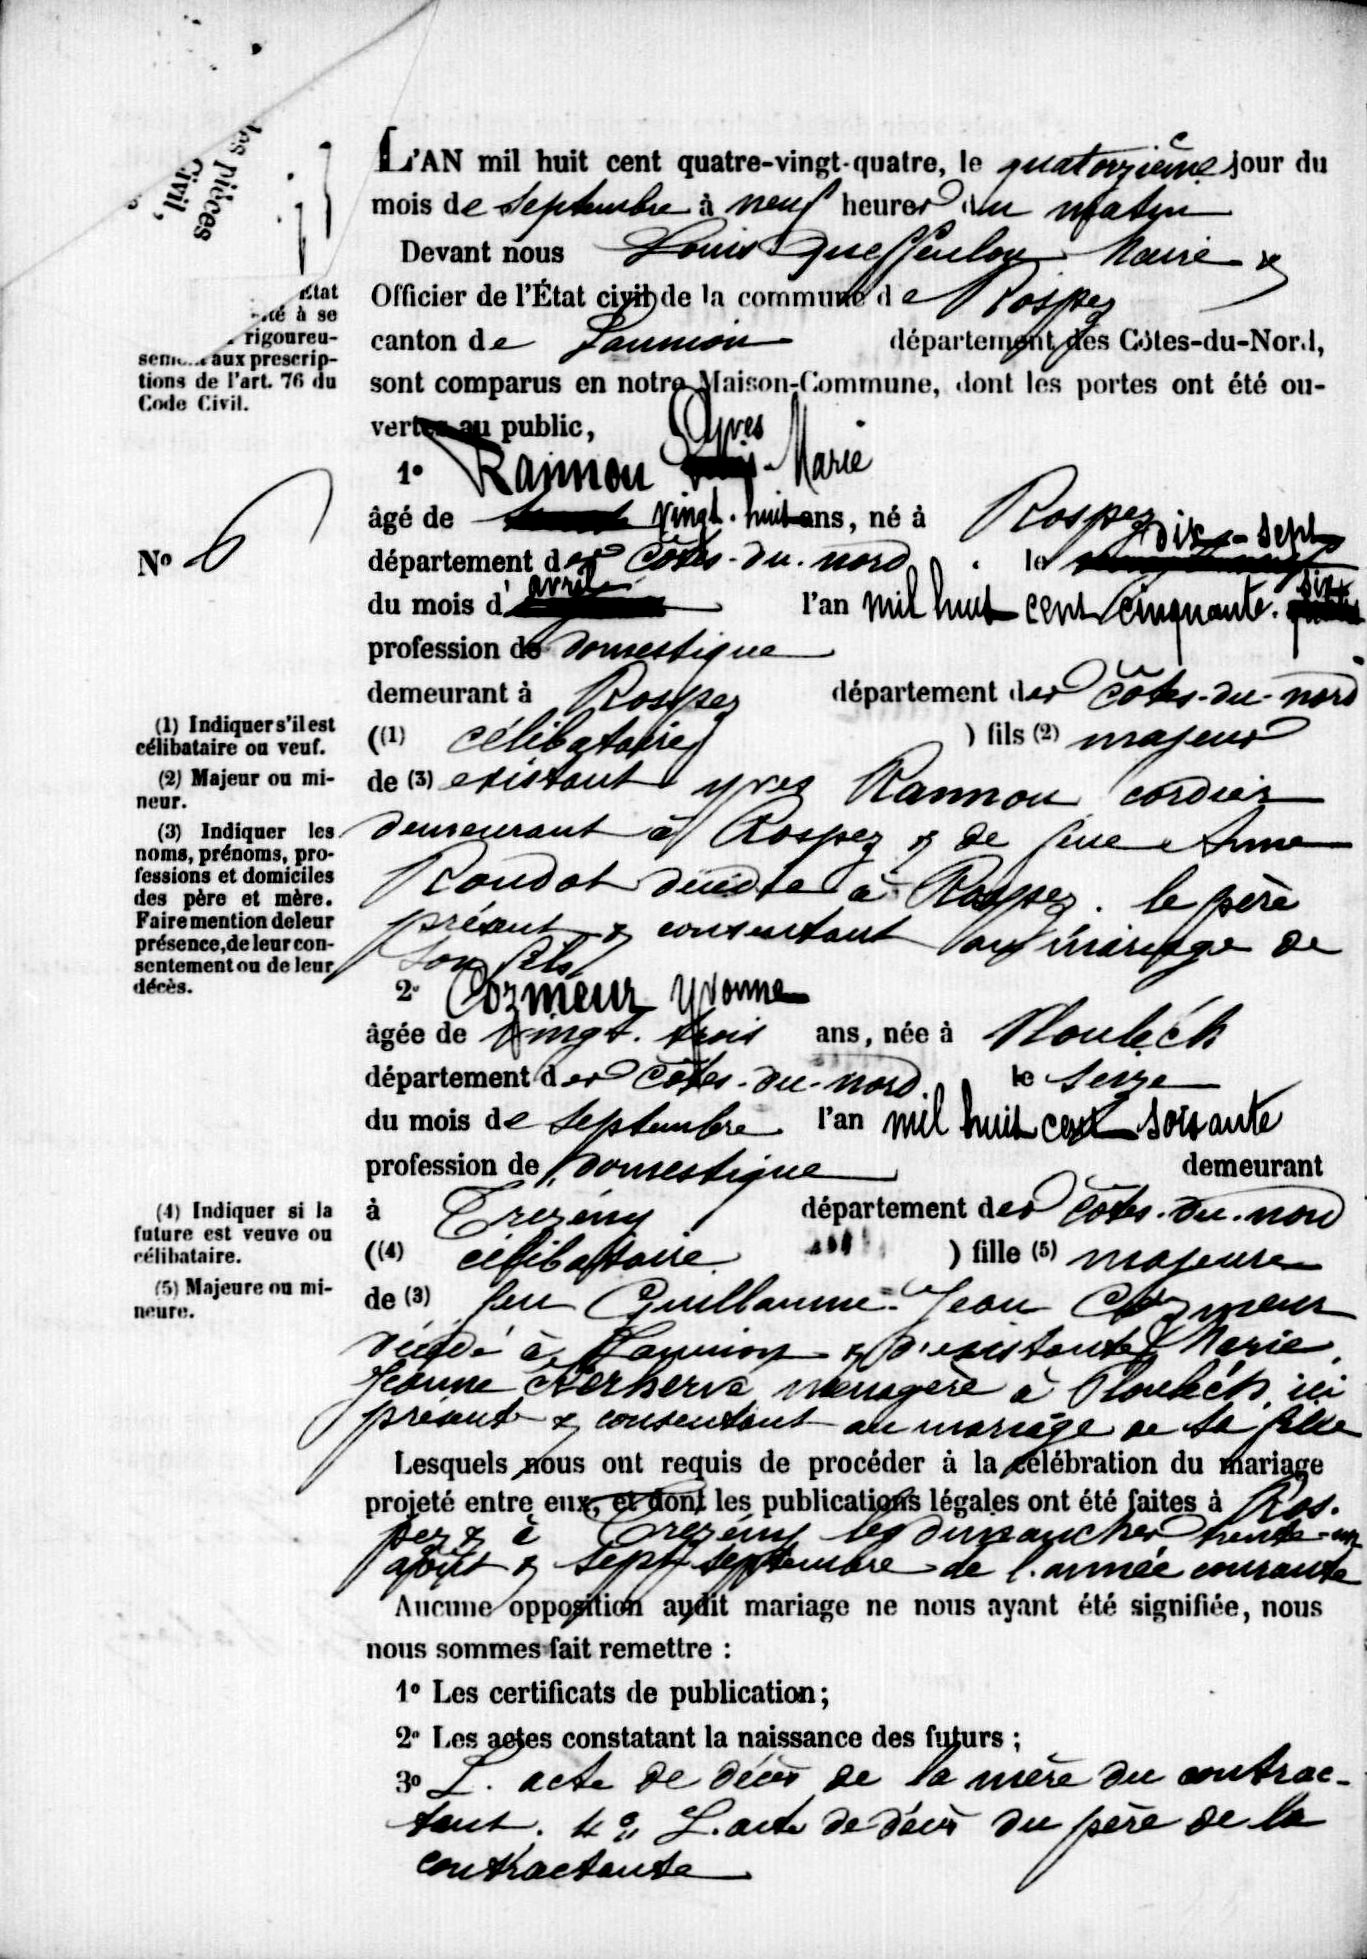 des pièces
civil,
L'AN mil huit cent quatre-vingt-quatre, le quatorzième jour du
mois de septembre à neuf heures du matin
Devant nous Louis Queffeulou Maire &
État
-té à se
rigoureu-
sement aux prescrip-
tions de l'art. 76 du
Code Civil.
Officier de l'État civil de la commune de Rospez
canton de Lannion département des Côtes-du-Nord,
sont comparus en notre Maison-Commune, dont les portes ont été ou-
vertes au public,
1° Rannou Yves Marie
âgé de vingt-huit ans, né à Rospez
N° 6
département des Côtes-du-nord le dix-sept
du mois d'avril l'an mil huit cent cinquante-six
profession de domestique
demeurant à Rospez département des côtes-du-nord
(1) Indiquer s'il est
célibataire ou veuf.
(2) Majeur ou mi-
neur.
(3) Indiquer les
noms, prénoms, pro-
fessions et domiciles
des père et mère.
Faire mention de leur
présence, de leur con-
sentement ou de leur
décès.
((1) célibataire ) fils (2) majeur
de (3) existant yves Rannou cordier
demeurant à Rospez & de feue Anne
Roudot décédée à Rospez. le père
présent & consentant au mariage de
son fils
2° Cozmeur yvonne
âgée de vingt-trois ans, née à Ploulec'h
département des côtes-du-nord le seize
du mois de septembre l'an mil huit cent soixante
profession de domestique demeurant
à Trézény département des côtes-du-nord
(4) Indiquer si la
future est veuve ou
célibataire.
(5) Majeure ou mi-
neure.
((4) célibataire ) fille (5) majeure
de (3) feu Guillaume-Jean Cozmeur
décédé à Lannion & d'existante Marie
Jeanne Kerhervé ménagère à Ploulec'h, ici
présente & consentant au mariage de sa fille
Lesquels nous ont requis de procéder à la célébration du mariage
projeté entre eux, et dont les publications légales ont été faites à Ros-
pez & à Trézény les dimanches trente-un
août & sept septembre de l'année courante
Aucune opposition audit mariage ne nous ayant été signifiée, nous
nous sommes fait remettre :
1° Les certificats de publication;
2° Les actes constatant la naissance des futurs ;
3° L'acte de décès de la mère du contrac-
tant. 4° L'acte de décès du père de la
contractante